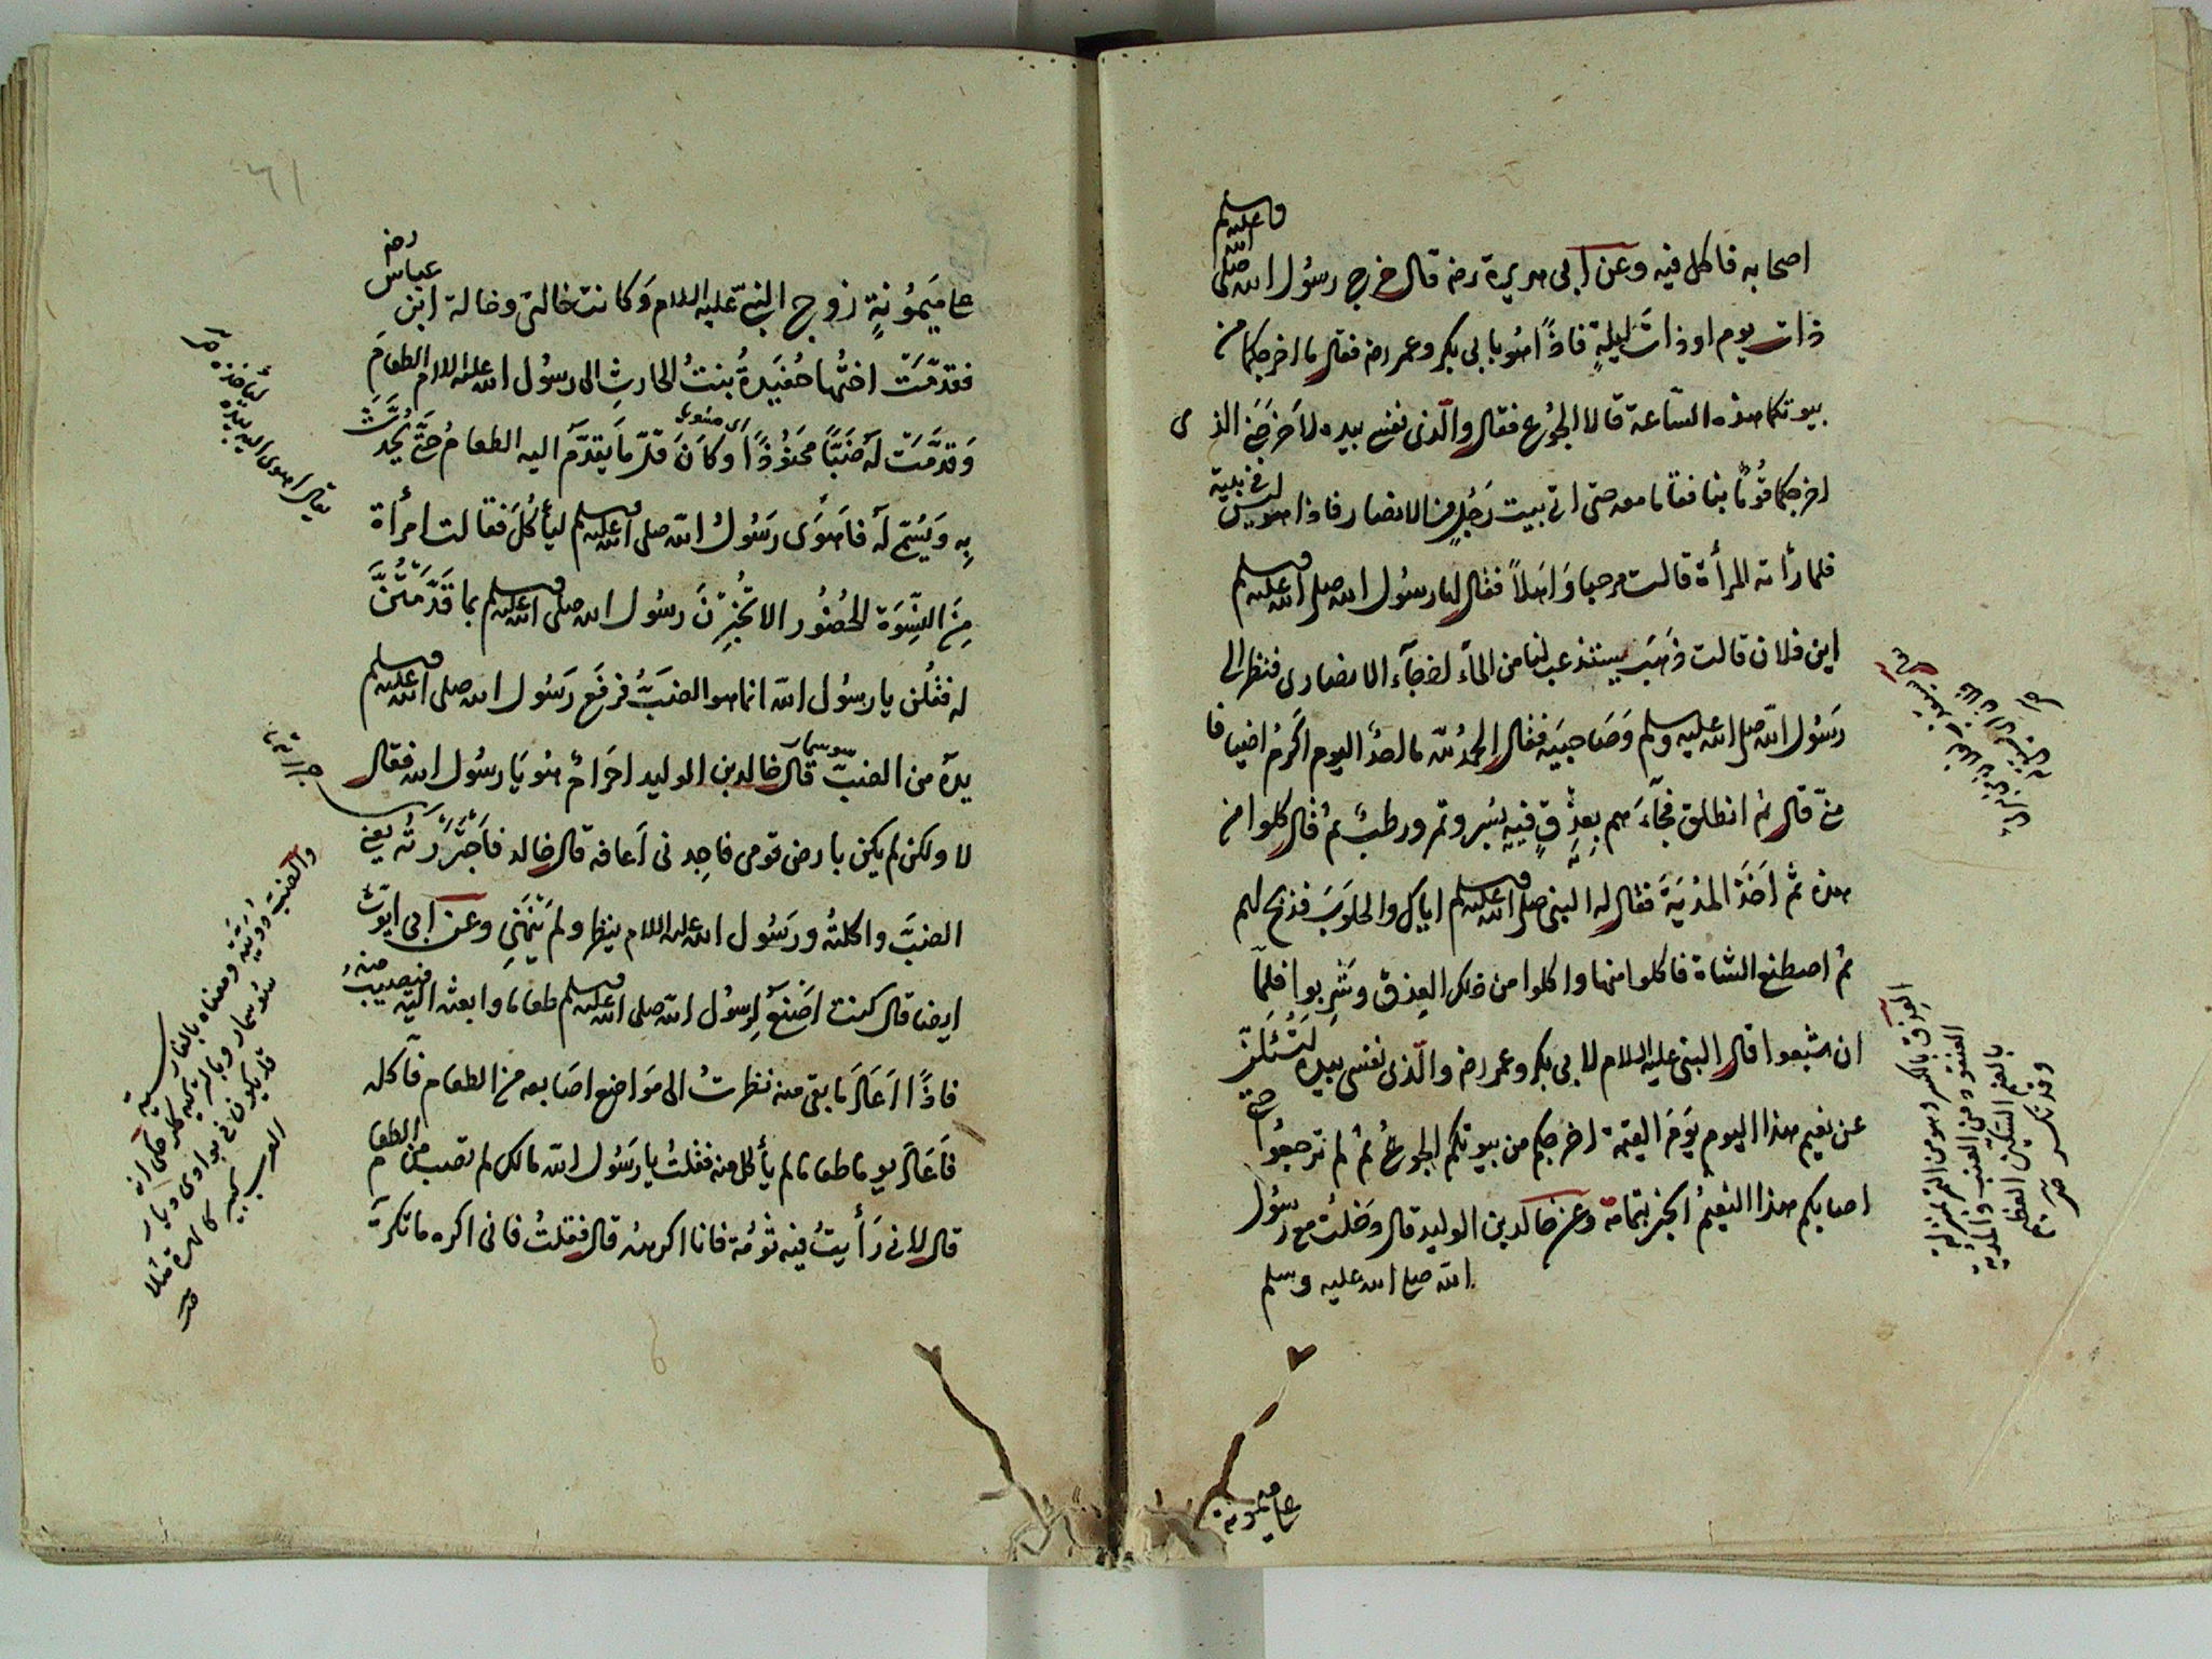 اصحابه فاكل فيه وعن ابى هريرة رضه قال خرج رسول الله صلى الله عليه وسلم
ذات يوم او ذات ليلة فاذا هو بابى بكر وعمر رضه فقال ما اخرجكما من
بيوتكما هذه الساعة قالا الجوع فقال والذى نفسى بيده لاخرجنى الذى
اخرجكما قوما بنا فقاما معه حتى اتى بيت رجل من الانصار فاذا هو ليس فى بيته
فلما رأته المرأة قالت مرحبا واهلا فقال لها رسول الله صلى الله عليه وسلم
اين فلان قالت ذهب يستذعب لنا من الماء اذ جآء الانصارى فنظر الى
رسول الله صلى الله عليه وسلم وصاحبيه فقال الحمد لله ما احد اليوم اكرم اضيافا
منى قال ثم انطلق فجآءهم بعذق فيه بسر وتمر ورطب ثم قال كلوا من
هذه ثم اخذ المدية فقال له النبى صلى الله عليه وسلم اياك والحلوب فذبح لهم
ثم اصطنع الشاة فاكلوا منها واكلوا من ذلك العذق وشربوا فلما
ان شبعوا قال النبى عليه السلام لابى بكر وعمر رضه والذى نفسى بيده لتسئلن
عن نعيم هذا اليوم يوم القيمة اخرجكم من بيوتكم الجوع ثم لم ترجعوا حتى
اصابكم هذا النعيم الخبر بتمامه وعن خالد بن الوليد قال دخلت مع رسول
الله صلى الله عليه وسلم
على ميمونة
العذق بالكسر وهو من التمر بمنزلة
العنقود من العنب والمدية
بالضم السكين العظيم
وقد تكسر
على ميمونة زوج النبى عليه السلام وكانت خالتى وخالة ابن عباس رضه
فقدمت اختها حفيدة بنت الحارث الى رسول الله عليه السلام الطعام
وقدمت له ضبا محنوذا اى مشويا وكان قل ما يقدم اليه الطعام حتى يحدث
به ويسمى له فاهوى رسول الله صلى الله عليه وسلم ليأكل فقالت امرأة
من النسوة الحضور الا تخبرن رسول الله صلى الله عليه وسلم بما قدمتن
له فقلن يا رسول الله انما هو الضب فرفع رسول الله صلى الله عليه وسلم
يده من الضب سوسمار قال خالد بن الوليد احرام هو يا رسول الله فقال
لا ولكن لم يكن بارض قومى فاجدنى اعافه قال خالد فاجتررته يعنى
الضب واكلته ورسول الله عليه السلام ينظر ولم ينهنى وعن ابى ايوب
ايضا قال كنت اصنع لرسول الله صلى الله عليه وسلم طعاما وابعثه اليه فيصيب منه
فاذا اعاد ما بقى منه نظرت الى مواضع اصابعه من الطعام فآكله
فاعاد يوما طعاما لم يأكل منه فقلت يا رسول الله ما لك لم تصب من الطعام
قال لانى رأيت فيه ثومة فانا اكرهه قال فقلت فانى اكره ما تكره
يقال اهوى اليه بيده
ليأخذه
والضب دويبة ومعناه بالفارسية
سوسمار